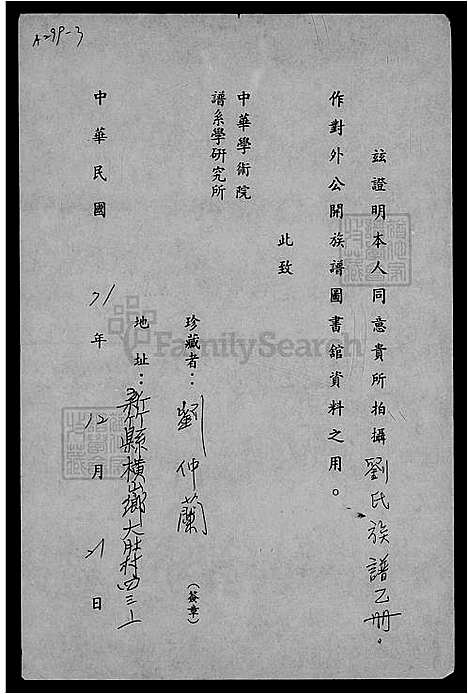 A-299-3
茲證明本人同意貴所拍攝劉氏族譜乙册。
作對外公開族譜圖書館資料之用。
此致
中華學術院
譜系學研究所
珍藏者：劉仲蘭（簽章）
地址：新竹縣橫山鄉大肚村四三上
中華民國71年12月21日
FamilySearch